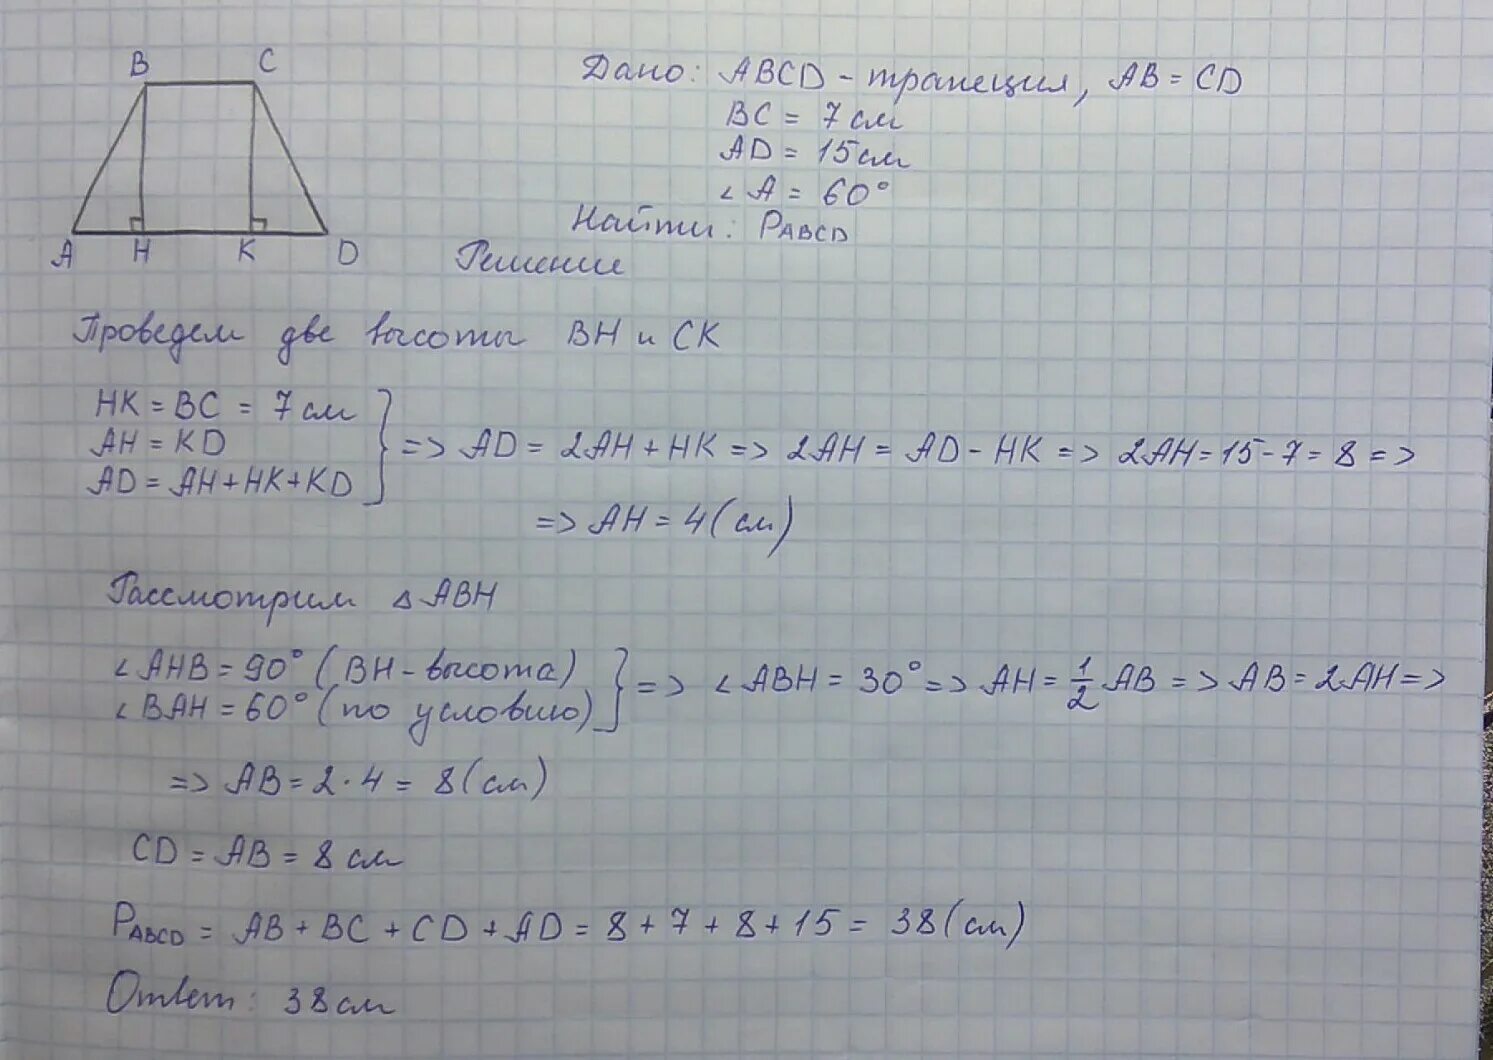 B C
A H K D
Дано: ABCD - трапеция, AB = CD
BC = 7 см
AD = 15 см
∠A = 60°
Найти: PABCD
Решение
Проведем две высоты BH и CK
HK = BC = 7 см
AH = KD
AD = AH + HK + KD
=> AD = 2AH + HK => 2AH = AD - HK => 2AH = 15 - 7 = 8 =>
=> AH = 4 (см)
Рассмотрим △ABH
∠AHB = 90° (BH - высота)
∠BAH = 60° (по условию)
=> ∠ABH = 30° => AH = 1/2 AB => AB = 2AH =>
=> AB = 2 · 4 = 8 (см)
CD = AB = 8 см
PABCD = AB + BC + CD + AD = 8 + 7 + 8 + 15 = 38 (см)
Ответ: 38 см